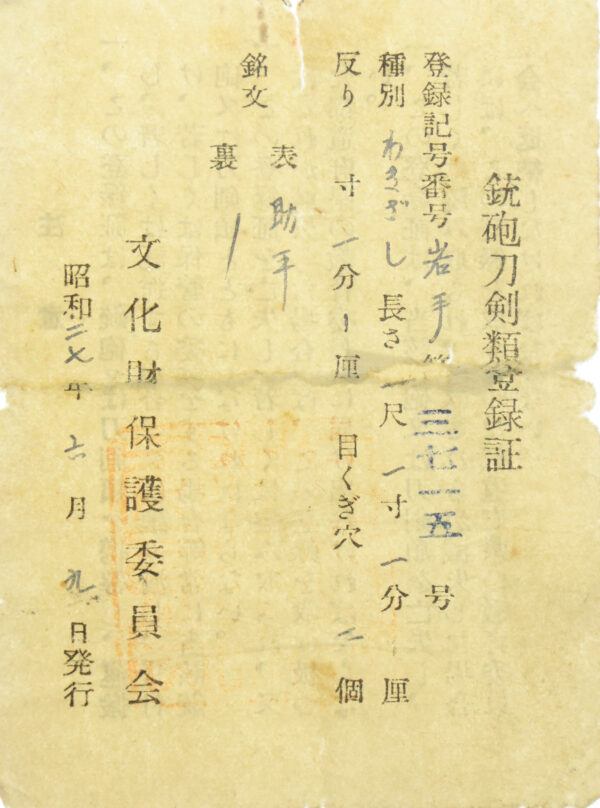 銃砲刀剣類登録証
登録記号番号 岩手第 三七一五 号
種別 わきざし 長さ 一尺 一寸 一分 厘
反り 寸 一分 厘 目くぎ穴 二 個
銘文 表 助平
裏
文化財保護委員会
昭和二七年六月九日発行